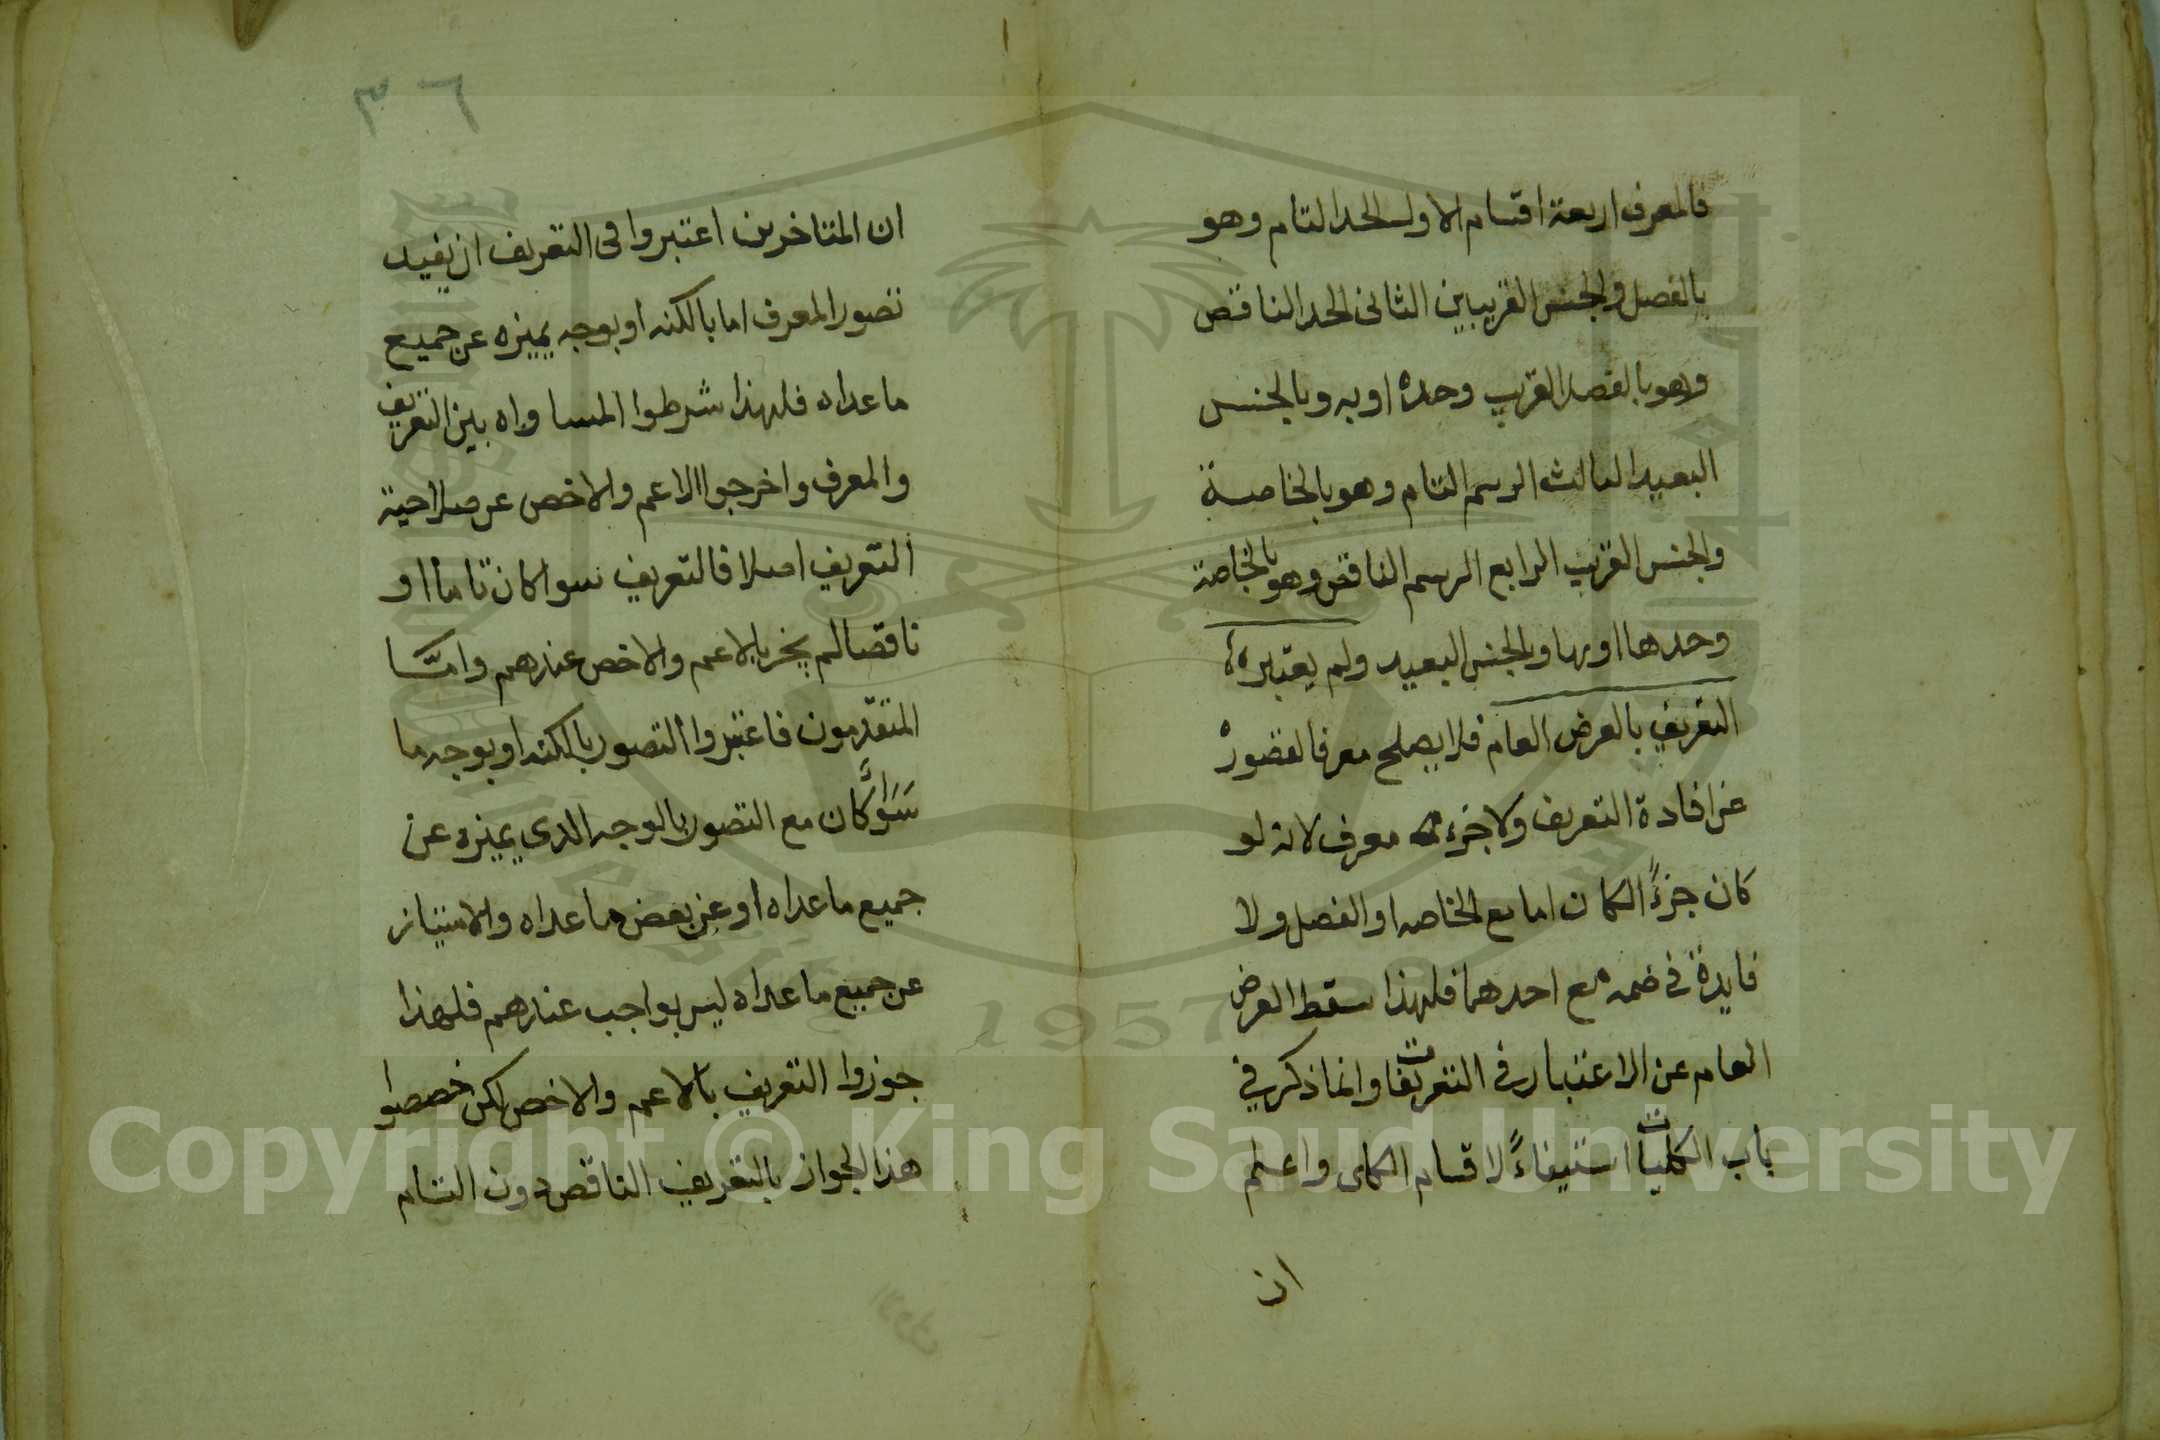 فالمعرف اربعة اقسام الاول الحد التام وهو
بالفصل والجنس القريبين الثانى الحد الناقص
وهو بالفصل القريب وحده او به وبالجنس
البعيد الثالث الرسم التام وهو بالخاصة
والجنس القريب الرابع الرسم الناقص وهو بالخاصة
وحدها او بها وبالجنس البعيد ولم يعتبروا
التعريف بالعرض العام فلا يصلح معرفا لقصوره
عن افادة التعريف ولا جزء معرف لانه لو
كان جزءً الكان اما مع الخاصه او الفصل ولا
فايدة في ضمه مع احدهما فلهذا سقط العرض
العام عن الاعتبار في التعريفات وانما ذكر في
باب الكليات استيفاءً لاقسام الكلى واعلم
ان
٣٦
ان المتاخرين اعتبروا فى التعريف ان يفيد
تصور المعرف اما بالكنه او بوجه يميزه عن جميع
ماعداه فلهذا شرطوا المساواه بين التعريف
والمعرف واخرجوا الاعم والاخص عن صلاحية
التعريف اصلا فالتعريف سوا كان تاما او
ناقصا لم يجز بالاعم والاخص عندهم وامّا
المتقدمون فاعتبروا التصور بالكنه او بوجه ما
سَوَاءً كان مع التصور بالوجه الدى يميزه عن
جميع ماعداه او عن بعض ماعداه والامتياز
عن جميع ماعداه ليس بواجب عندهم فلهذا
جوزوا التعريف بالاعم والاخص لكن خصصوا
هذا الجواز بالتعريف الناقص دون التام
1957
Copyright © King Saud University